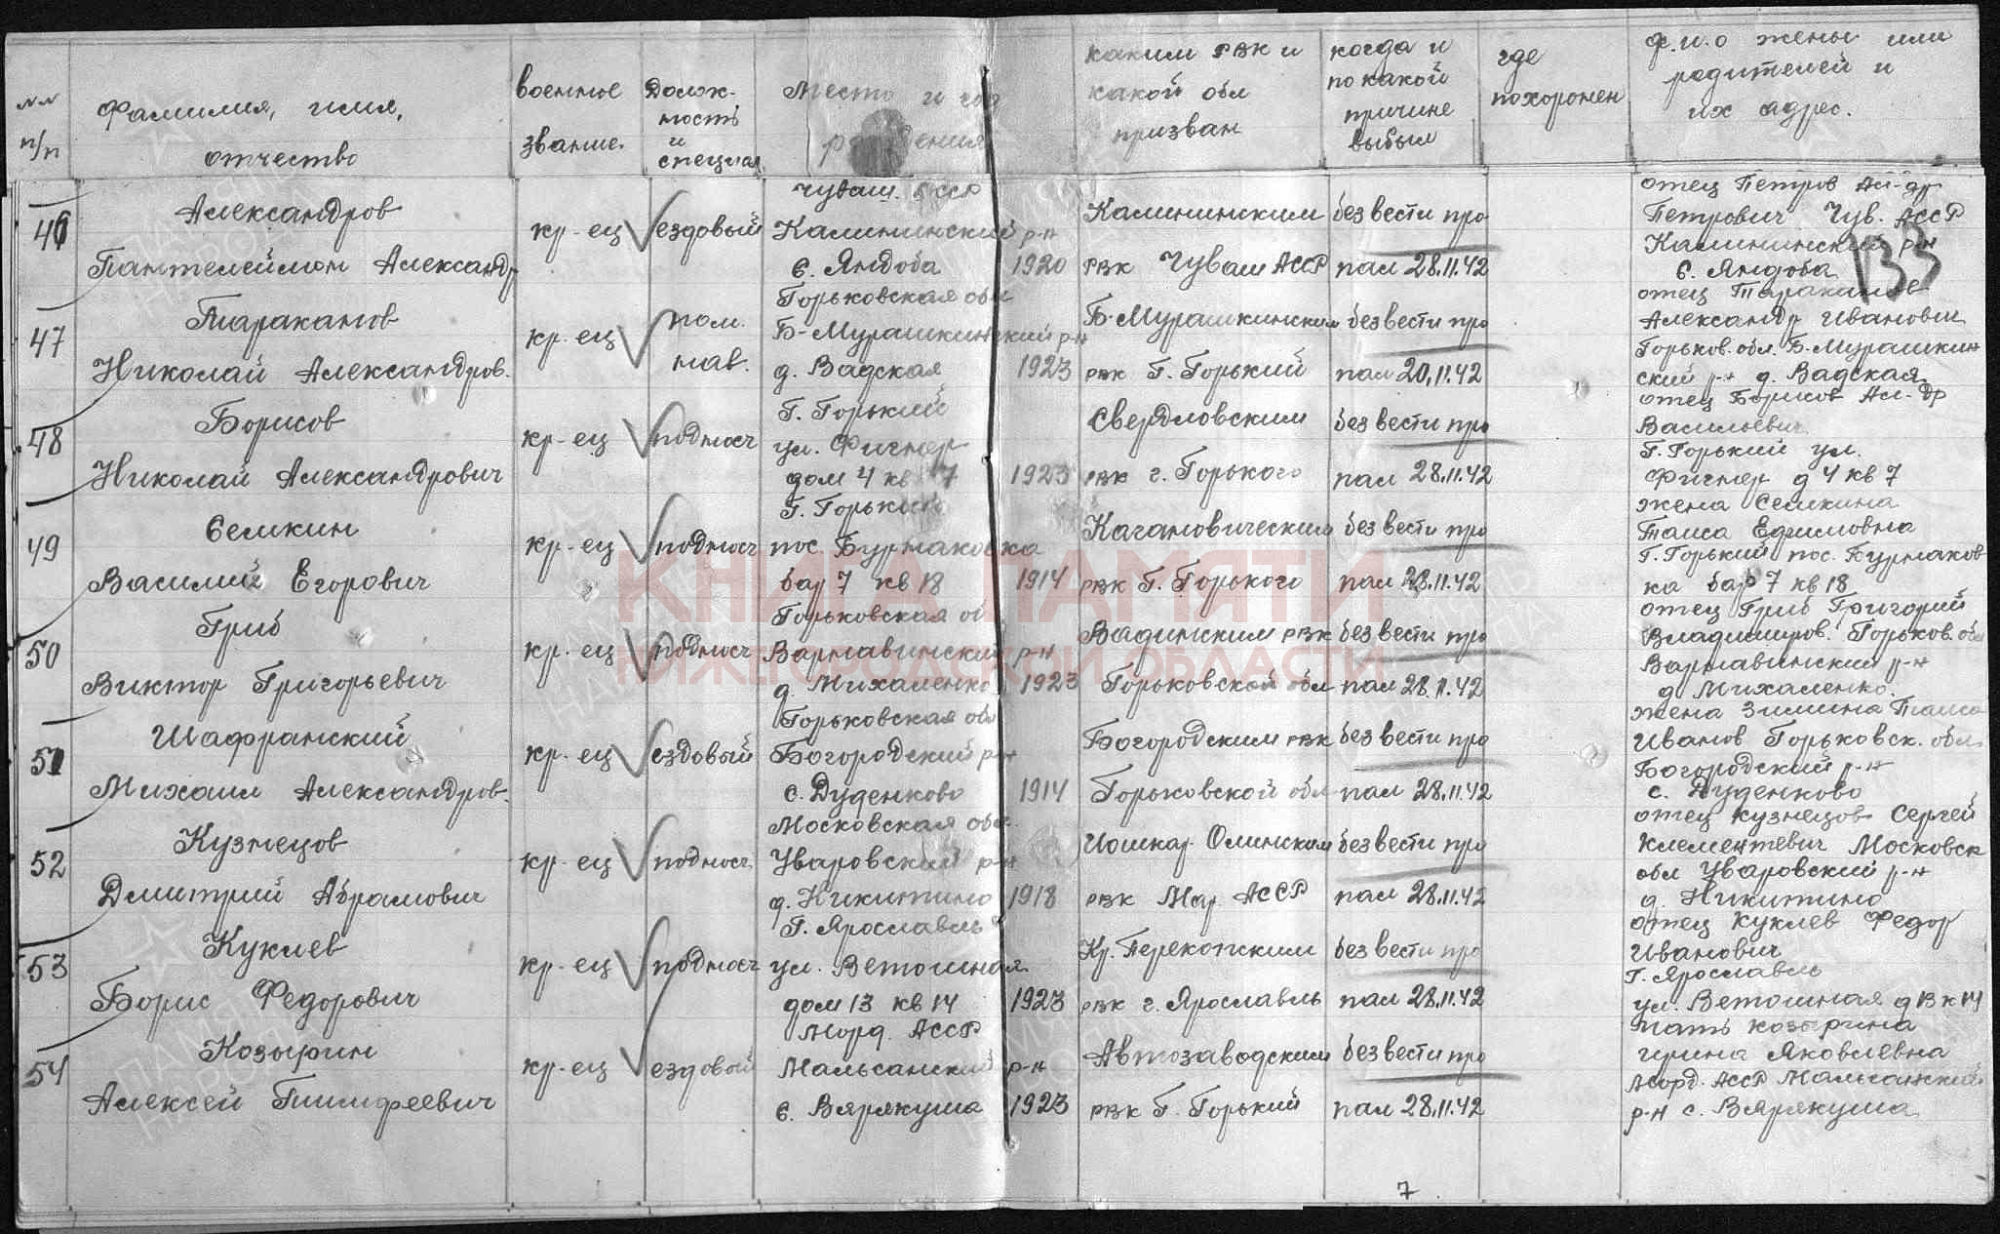 №№ п/п
Фамилия, имя, отчество
военное звание.
Долж-
ность
и
специал.
Место и год
рождения
каким РВК и
какой обл
призван
когда и
по какой
причине
выбыл
где
похоронен
ф.и.о жены или
родителей и
их адрес.
133
46
Александров
Пантелеймон Александр
кр-ец
ездовый
Чуваш. АССР
Калининский р-н
с. Яндоба 1920
Калининским
РВК Чуваш АССР
без вести про
пал 28.11.42
отец Петров Ал-др
Петрович Чув. АССР
Калининский р-н
с. Яндоба
47
Тараканов
Николай Александров.
кр-ец
пом.
нав.
Горьковская обл
Б-Мурашкинский р-н
д. Вадская 1923
Б-Мурашкинским
РВК Г. Горький
без вести про
пал 20.11.42
отец Тараканов
Александр Иванович
Горьков. обл. Б-Мурашкин
ский р-н д. Вадская
48
Борисов
Николай Александрович
кр-ец
подносч
Г. Горький
ул. Фигнер
дом 4 кв 7 1923
Свердловским
РВК г. Горького
без вести про
пал 28.11.42
отец Борисов Ал-др
Васильевич
Г. Горький ул.
Фигнер д 4 кв 7
49
Семкин
Василий Егорович
кр-ец
подносч
Г. Горький
пос. Бурнаковка
бар 7 кв 18 1914
Кагановическим
РВК Г. Горького
без вести про
пал 28.11.42
жена Семкина
Таиса Ефимовна
Г. Горький пос. Бурнаков
ка бар 7 кв 18
50
Гриб
Виктор Григорьевич
кр-ец
подносч
Горьковская об
Варнавинский р-н
д. Михаленко 1923
Вадинским РВК
Горьковской обл
без вести про
пал 28.11.42
отец Гриб Григорий
Владимиров. Горьков. обл
Варнавинский р-н
д. Михаленко.
51
Шафранский
Михаил Александров.
кр-ец
ездовый
Горьковская обл
Богородский р-н
с. Дуденково 1914
Богородским РВК
Горьковской обл
без вести про
пал 28.11.42
жена Зимина Таиса
Иванов Горьковск. обл.
Богородский р-н
с. Дуденково
52
Кузнецов
Дмитрий Абрамович
кр-ец
подносч.
Московская обл.
Уваровский р-н
д. Никитино 1918
Йошкар-Олинским
РВК Мар. АССР
без вести про
пал 28.11.42
отец Кузнецов Сергей
Клементевич Московск
обл Уваровский р-н
д. Никитино
53
Куклев
Борис Федорович
кр-ец
подносч
Г. Ярославль
ул. Ветошная
дом 13 кв 14 1923
Кр. Перекопским
РВК г. Ярославль
без вести про
пал 28.11.42
отец Куклев Федор
Иванович
Г. Ярославль
ул. Ветошная д 13 к 14
54
Козырин
Алексей Тимофеевич
кр-ец
ездовой
Морд. АССР
Мальсанский р-н
с. Вярякуша 1923
Автозаводским
РВК Г. Горький
без вести про
пал 28.11.42
мать Козырина
Ирина Яковлевна
Морд. АССР Мальсанский
р-н с. Вярякуша
7
КНИГА ПАМЯТИ
НИЖЕГОРОДСКОЙ ОБЛАСТИ